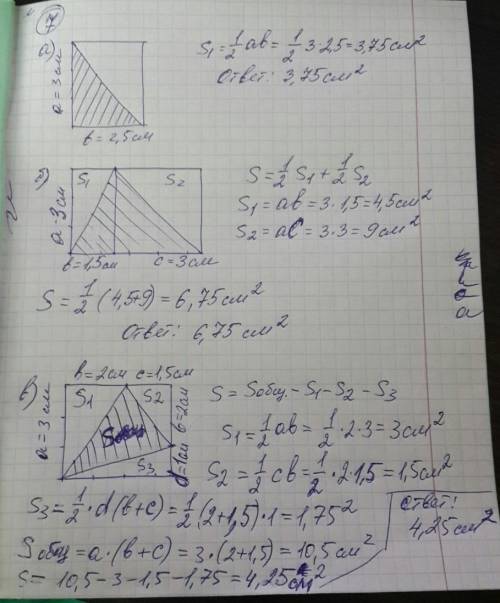 7
а)
a = 3 см
b = 2,5 см
S₁ = 1/2 ab = 1/2 3·25 = 3,75 см²
Ответ: 3,75 см²
S₁ S₂
a·3 см
b = 1,5 см c = 3 см
S = 1/2 S₁ + 1/2 S₂
S₁ = ab = 3·1,5 = 4,5 см²
S₂ = ac = 3·3 = 9 см²
S = 1/2 (4,5+9) = 6,75 см²
Ответ: 6,75 см²
в)
b = 2 см c = 1,5 см
a = 3 см
S₁ S₂
b = 2 см
S₃
d = 1 см
S = Sобщ. - S₁ - S₂ - S₃
S₁ = 1/2 ab = 1/2 · 2 · 3 = 3 см²
S₂ = 1/2 cb = 1/2 · 2 · 1,5 = 1,5 см²
S₃ = 1/2 · d(b+c) = 1/2 (2+1,5)·1 = 1,75²
Sобщ = a·(b+c) = 3·(2+1,5) = 10,5 см²
S = 10,5 - 3 - 1,5 - 1,75 = 4,25 см²
Ответ:
4,25 см²